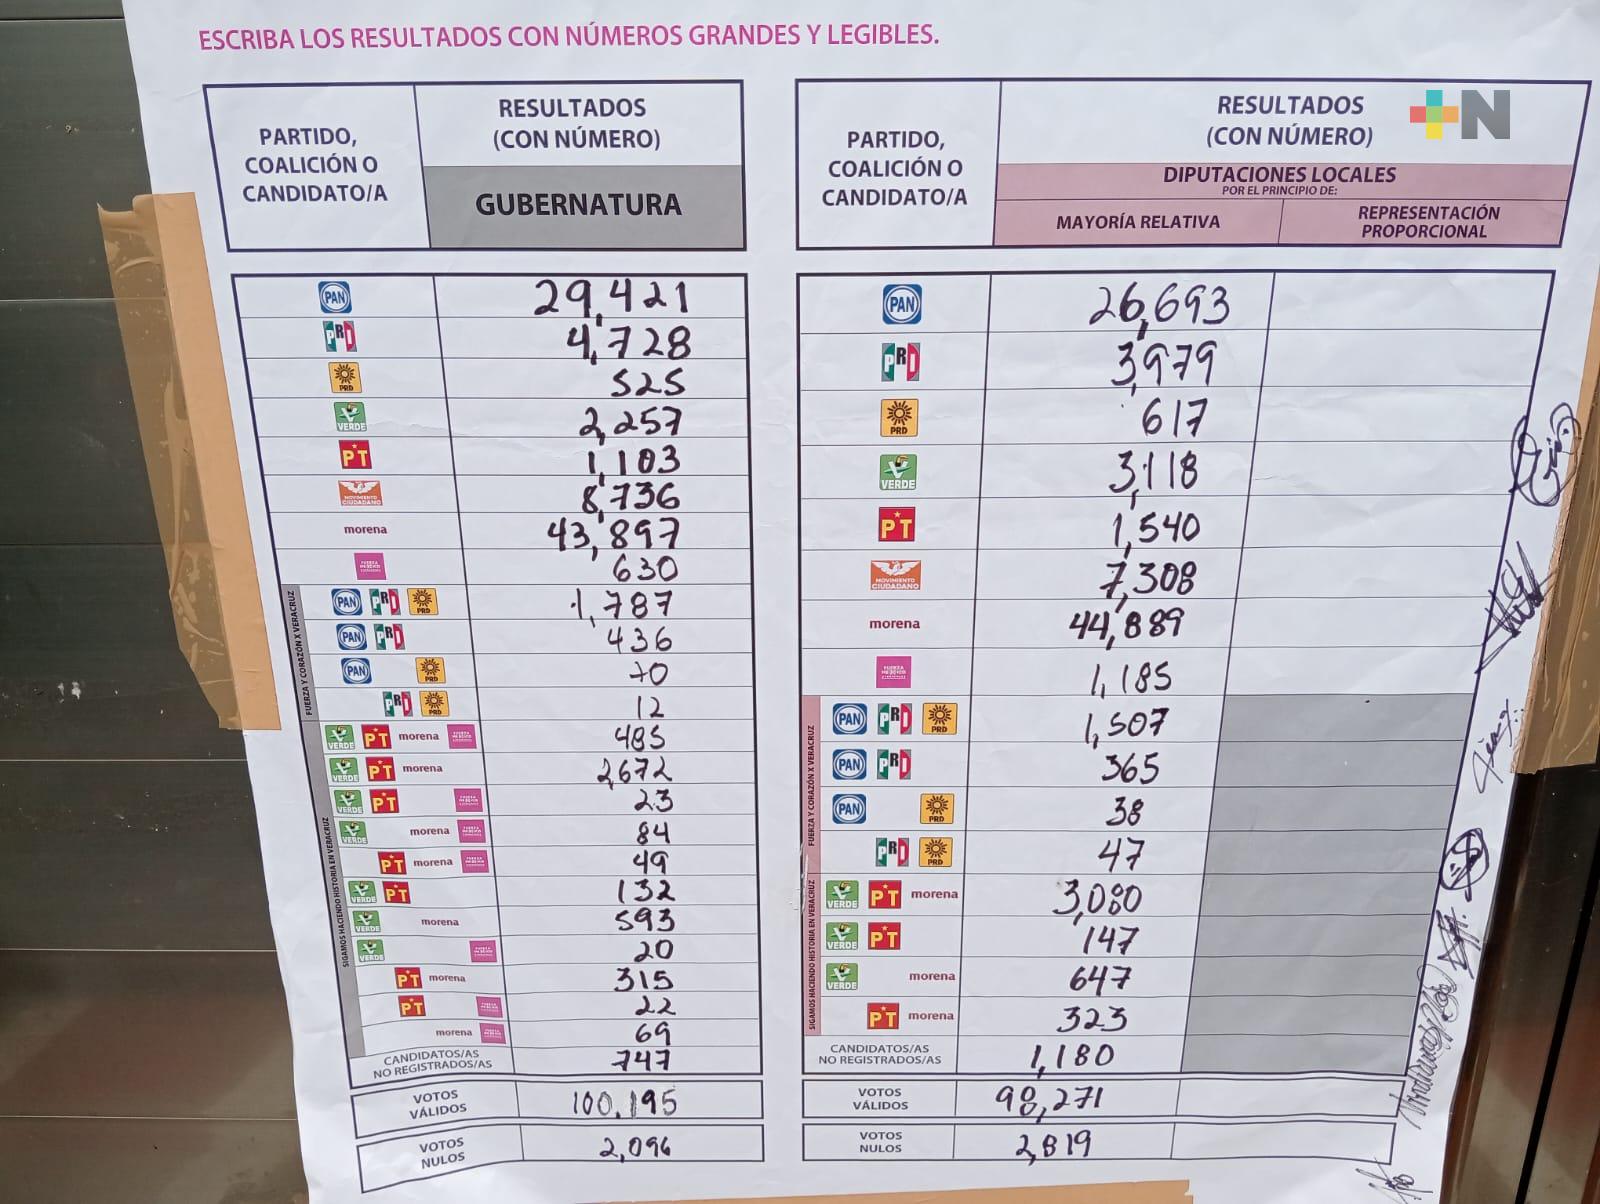 ESCRIBA LOS RESULTADOS CON NÚMEROS GRANDES Y LEGIBLES.
+N
PARTIDO,
COALICIÓN O
CANDIDATO/A
RESULTADOS
(CON NÚMERO)
GUBERNATURA
PAN 29,421
PRI 4,728
PRD 525
VERDE 2,257
PT 1,103
MOVIMIENTO CIUDADANO 8,736
morena 43,897
FUERZA 630
FUERZA Y CORAZÓN X VERACRUZ
PAN PRI PRD 1,787
PAN PRI 436
PAN PRD 70
PRI PRD 12
SIGAMOS HACIENDO HISTORIA EN VERACRUZ
VERDE PT morena 485
VERDE PT morena 2,672
VERDE PT 23
VERDE morena 84
PT morena 49
VERDE PT 132
VERDE morena 593
VERDE 20
PT morena 315
PT 22
morena 69
CANDIDATOS/AS
NO REGISTRADOS/AS 747
VOTOS
VÁLIDOS 100,195
VOTOS
NULOS 2,096
PARTIDO,
COALICIÓN O
CANDIDATO/A
RESULTADOS
(CON NÚMERO)
DIPUTACIONES LOCALES
POR EL PRINCIPIO DE:
MAYORÍA RELATIVA
REPRESENTACIÓN
PROPORCIONAL
PAN 26,693
PRI 3,979
PRD 617
VERDE 3,118
PT 1,540
MOVIMIENTO CIUDADANO 7,308
morena 44,889
FUERZA 1,185
FUERZA Y CORAZÓN X VERACRUZ
PAN PRI PRD 1,507
PAN PRI 365
PAN PRD 38
PRI PRD 47
SIGAMOS HACIENDO HISTORIA EN VERACRUZ
VERDE PT morena 3,080
VERDE PT 147
VERDE morena 647
PT morena 323
CANDIDATOS/AS
NO REGISTRADOS/AS 1,180
VOTOS
VÁLIDOS 98,271
VOTOS
NULOS 2,819